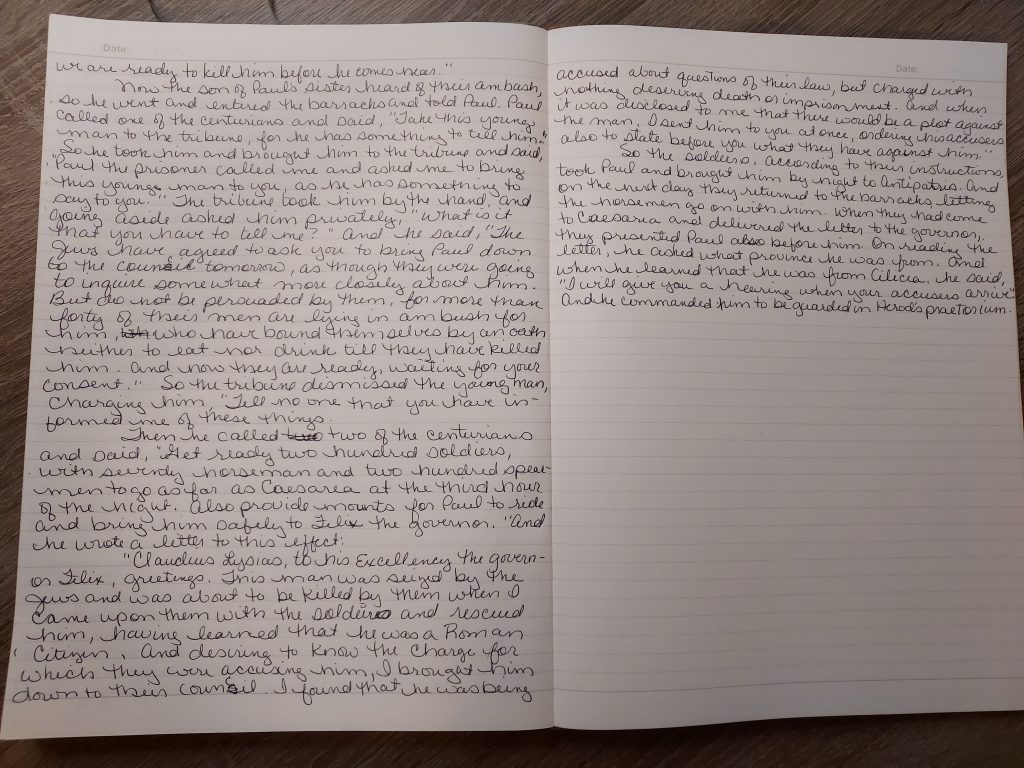 Date:
we are ready to kill him before he comes near."
Now the son of Paul's sister heard of their ambush,
so he went and entered the barracks and told Paul. Paul
called one of the centurians and said, "Take this young
man to the tribune, for he has something to tell him."
So he took him and brought him to the tribune and said,
"Paul the prisoner called me and asked me to bring
this young man to you, as he has something to
say to you." The tribune took him by the hand, and
going aside asked him privately, "What is it
that you have to tell me?" And he said, "The
Jews have agreed to ask you to bring Paul down
to the council tomorrow, as though they were going
to inquire somewhat more closely about him.
But do not be persuaded by them, for more than
forty of their men are lying in ambush for
him, who have bound themselves by an oath
neither to eat nor drink till they have killed
him. And now they are ready, waiting for your
consent." So the tribune dismissed the young man,
charging him, "Tell no one that you have in-
formed me of these things.
Then he called two of the centurians
and said, "Get ready two hundred soldiers,
with seventy horseman and two hundred spear-
men to go as far as Caesarea at the third hour
of the night. Also provide mounts for Paul to ride
and bring him safely to Felix the governor. "And
he wrote a letter to this effect:
"Claudius Lysias, to his Excellency the govern-
or Felix, greetings. This man was seized by the
Jews and was about to be killed by them when I
came upon them with the soldiers and rescued
him, having learned that he was a Roman
Citizen. And desiring to know the charge for
which they were accusing him, I brought him
down to their council. I found that he was being
Date:
accused about questions of their law, but charged with
nothing deserving death or imprisonment. And when
it was disclosed to me that there would be a plot against
the man, I sent him to you at once, ordering his accusers
also to state before you what they have against him."
So the soldiers, according to their instructions,
took Paul and brought him by night to Antipatris. And
on the next day they returned to the barracks, letting
the horsemen go on with him. When they had come
to Caesaria and delivered the letter to the governor,
they presented Paul also before him. On reading the
letter, he asked what province he was from. And
when he learned that he was from Cilicia, he said,
"I will give you a hearing when your accusers arrive."
And he commanded him to be guarded in Herod's praetorium.